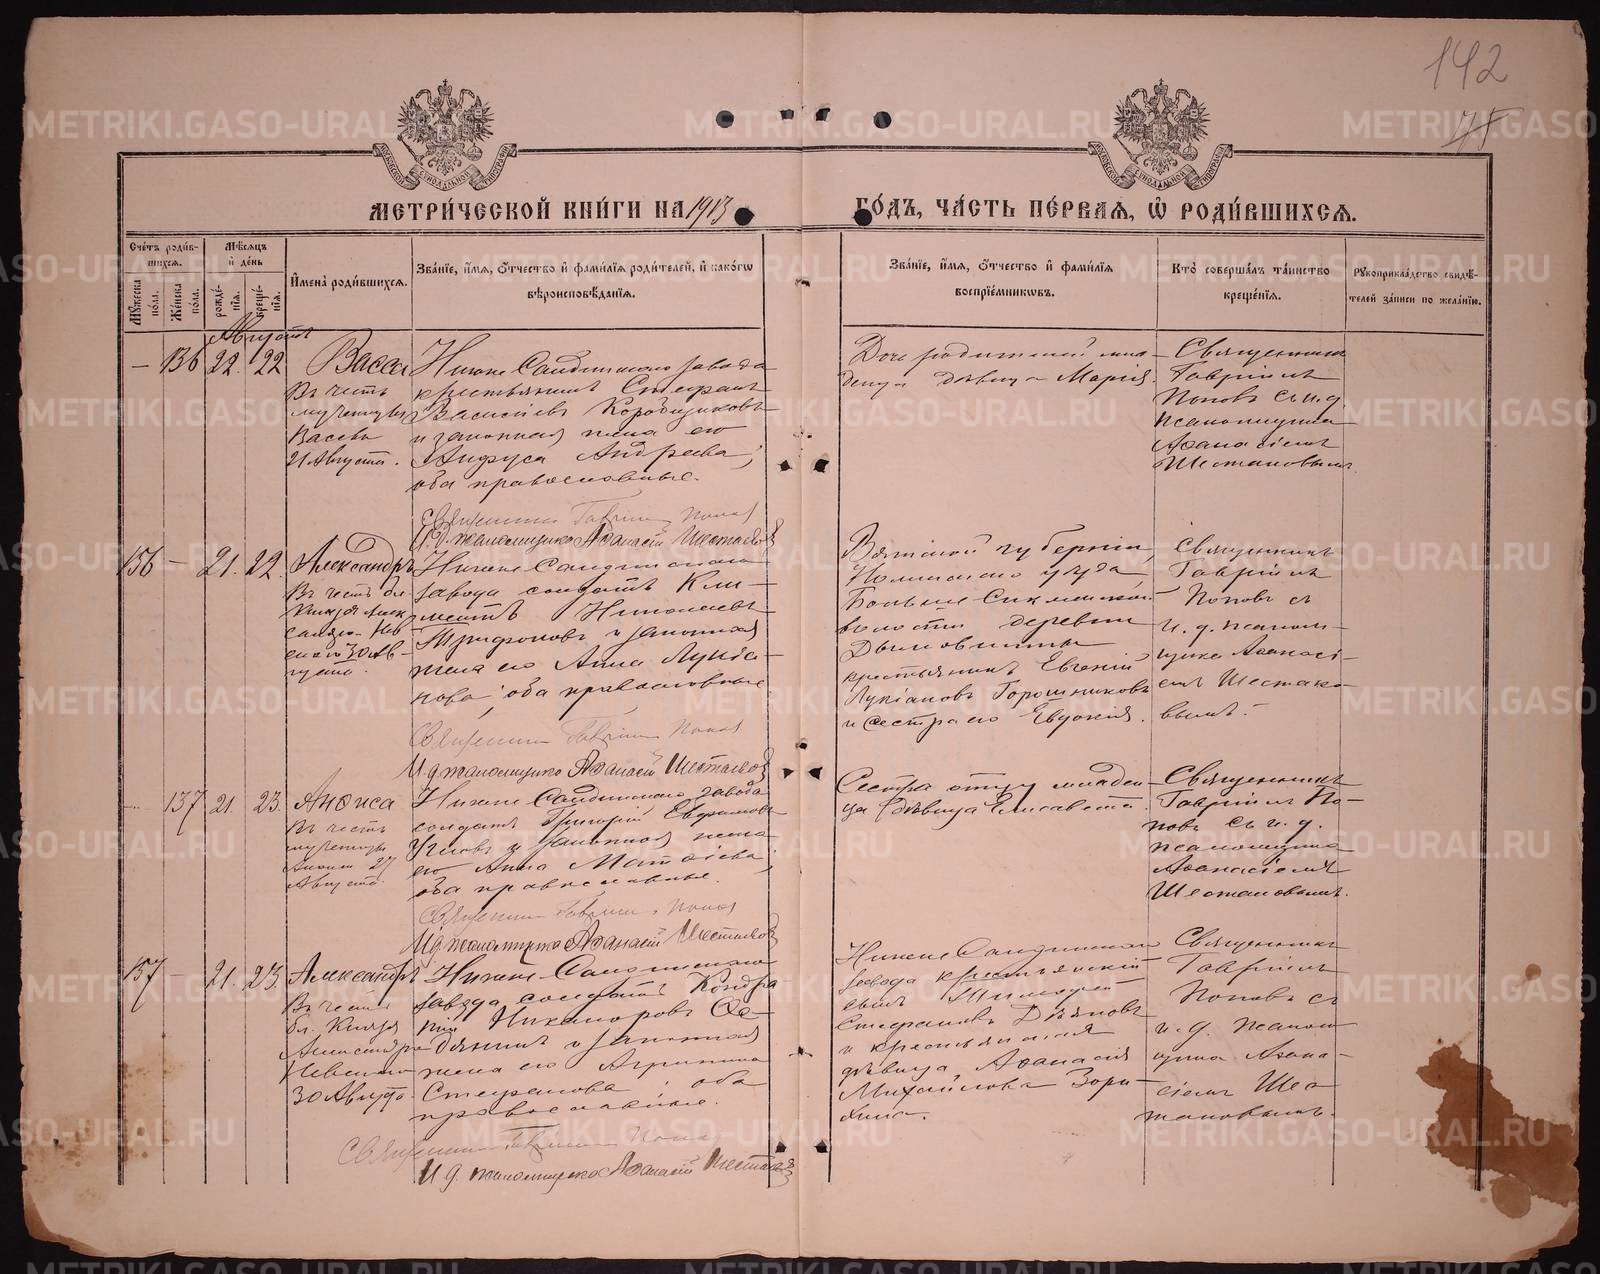 142
75
МОСКОВСКОЙ СѴНОДАЛЬНОЙ ТИПОГРАФІИ
МОСКОВСКОЙ СѴНОДАЛЬНОЙ ТИПОГРАФІИ
МЕТРИ́ЧЕСКОЙ КНИ́ГИ НА 1913 ГО́ДЪ, ЧА́СТЬ ПЕ́РВАЯ, Ѡ РОДИ́ВШИХСЯ.
Сче́тъ роди́в-
шихся.
Му́жеска по́ла.
Же́нска по́ла.
Мѣ́сяцъ
и҆ де́нь
рожде́-
нїя.
креще́-
нїя.
И҆мена̀ роди́вшихся.
Зва́нїе, и҆́мя, ѻ҆́тчество и҆ фами́лїя роди́телей, и҆ како́гѡ
вѣроисповѣ́данїя.
Зва́нїе, и҆́мя, ѻ҆́тчество и҆ фами́лїя
воспрїе́мникѡвъ.
Кто̀ соверша́лъ та́инство
креще́нїя.
Рꙋкоприкла́дство свидѣ́-
телей за́писи по жела́нїю.
Августъ
— 136 22. 22 Васса
Въ честь
мученицы
Вассы
21 Августа.
Нижне Салдинскаго завода
крестьянинъ Стефанъ
Васильевъ Коробщиковъ
и законная жена его
Анфуса Андреева,
оба православные.
Священникъ Гавріилъ Поповъ
И. д. псаломщика Аѳанасій Шестаковъ
Дочь родителей мла-
денца дѣвица Марія.
Священникъ
Гавріилъ
Поповъ съ и. д.
псаломщика
Аѳанасіемъ
Шестаковымъ.
156 — 21. 22. Александръ
Въ честь бл.
Князя Алек
сандра Нев
скаго 30 Ав-
густа.
Нижне Салдинскаго
завода солдатъ Кли-
ментъ Николаевъ
Трифоновъ и законная
жена его Анна Лукіа-
нова; оба православные
Священникъ Гавріилъ Поповъ
И. д. псаломщика Аѳанасій Шестаковъ
Вятской губерніи,
уѣзда,
волости деревни
крестьянинъ Евгеній
Лукіановъ Горошниковъ
и сестра его Евдокія.
Священникъ
Гавріилъ
Поповъ съ
и. д. псалом-
щика Аѳанасі-
емъ Шестако-
вымъ.
— 137 21. 23. Анѳиса
Въ честь
мученицы
Анѳисы 27
Августа.
Нижне Салдинскаго завода
солдатъ Григорій Евфимовъ
и законная жена
его Анна Матѳіева
оба православные.
Священникъ Гавріилъ Поповъ
И. д. псаломщика Аѳанасій Шестаковъ
Сестра отцу младен-
ца дѣвица Елисавета.
Священникъ
Гавріилъ По-
повъ съ и. д.
псаломщика
Аѳанасіемъ
Шестаковымъ.
157 — 21. 23. Александръ
Въ честь
бл. Князя
Александра
Невскаго
30 Августа.
Нижне Салдинскаго
завода солдатъ Кондра
тій Никаноровъ
и законная
жена его Агрипина
Стефанова; оба
православные.
Священникъ Гавріилъ Поповъ
И. д. псаломщика Аѳанасій Шестаковъ
Нижне Салдинскаго
завода крестьянскій
сынъ Тимофей
Стефановъ
и крестьянская
дѣвица Аѳанасія
Михайлова Зори-
хина.
Священникъ
Гавріилъ
Поповъ съ
и. д. псалом
щика Аѳана-
сіемъ Шес
таковымъ.
METRIKI.GASO-URAL.RU